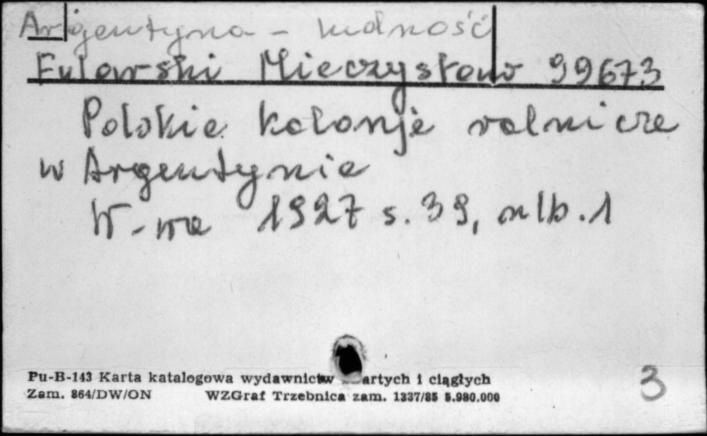 Argentyna - ludność
Fularski Mieczysław 99673
Polskie kolonje rolnicze
w Argentynie
W-wa 1927 s. 39, nlb. 1
Pu-B-143 Karta katalogowa wydawnictw artych i ciągłych
Zam. 864/DW/ON WZGraf Trzebnica zam. 1337/85 5.980.000
3